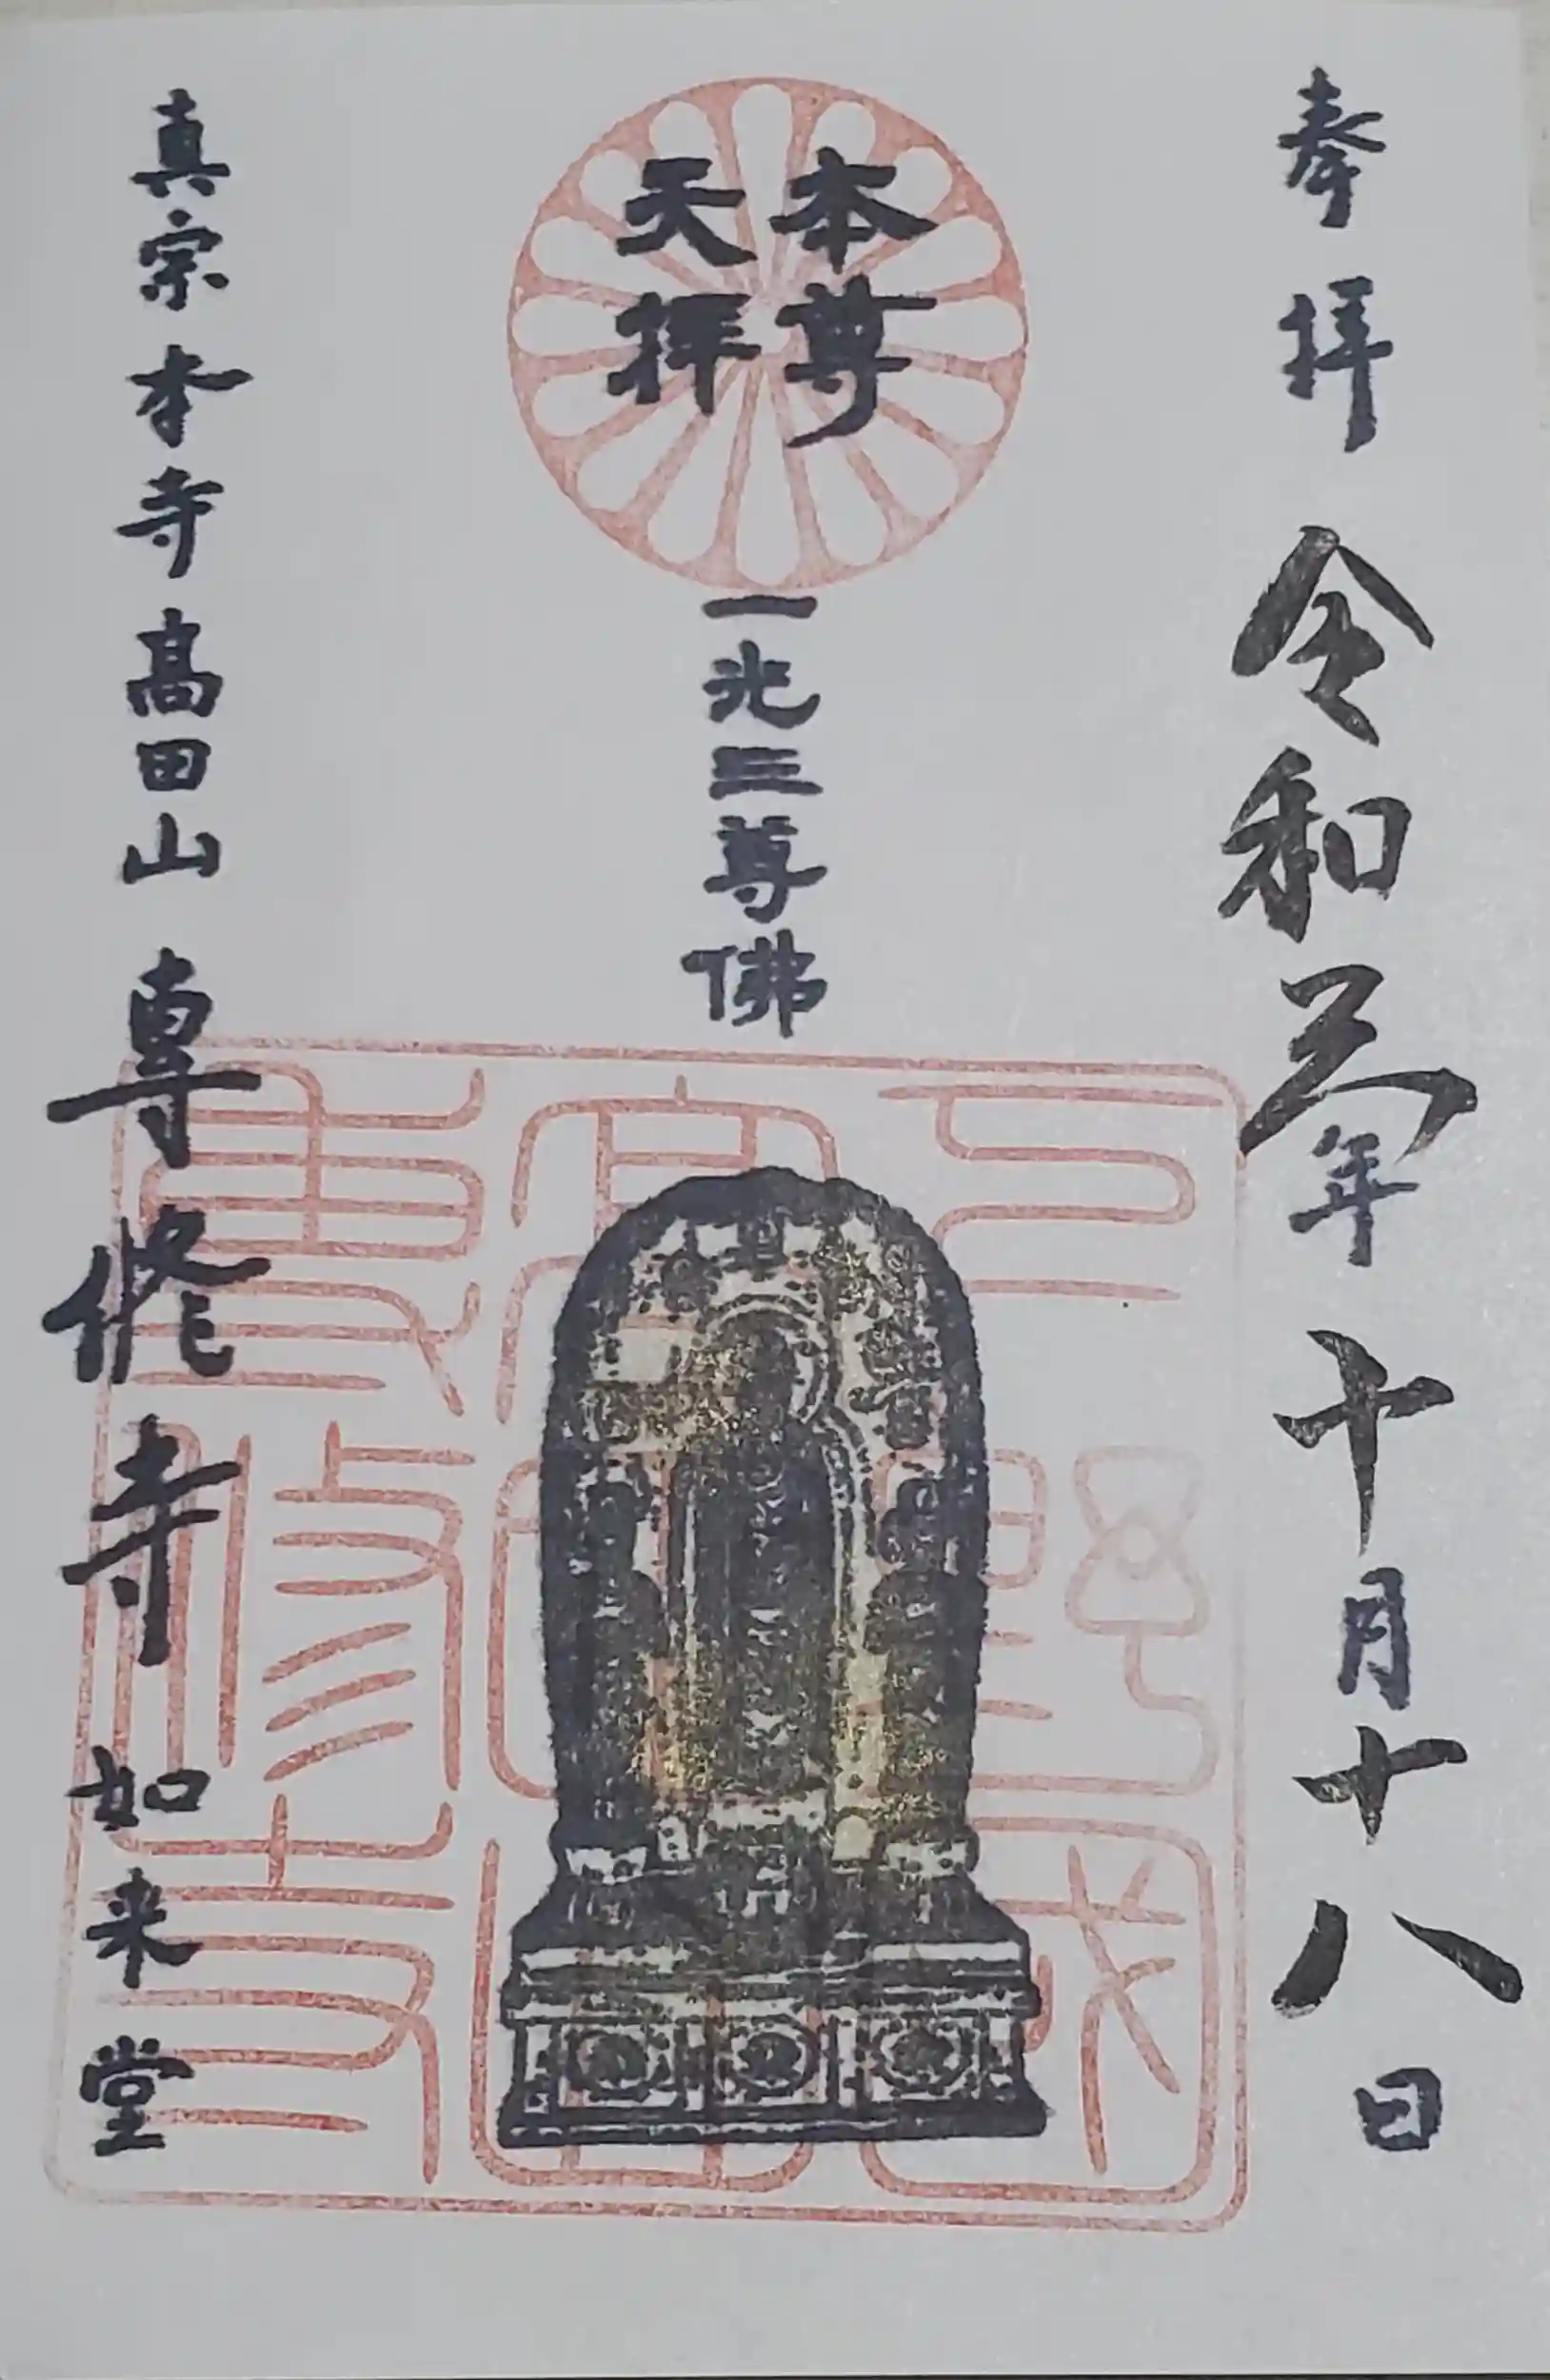 奉拝 令和元年十月十八日
本尊
天拝
一光三尊佛
真宗本寺高田山 専修寺 如来堂